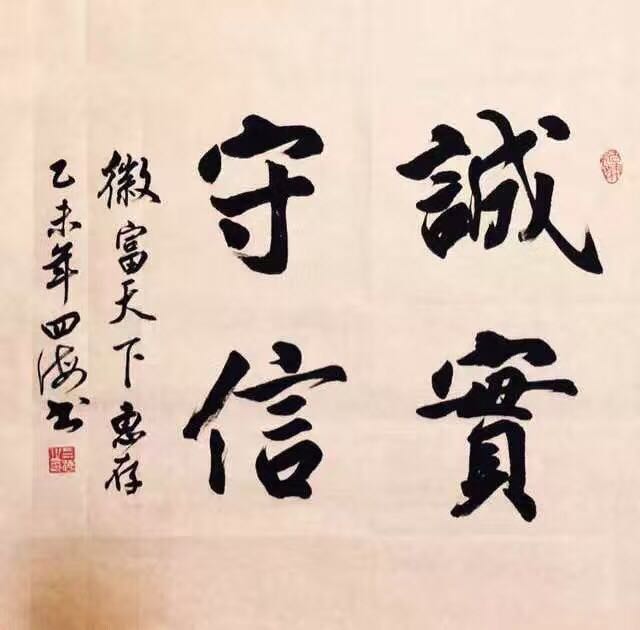 誠實
守信
徽富天下惠存
乙未年四海书